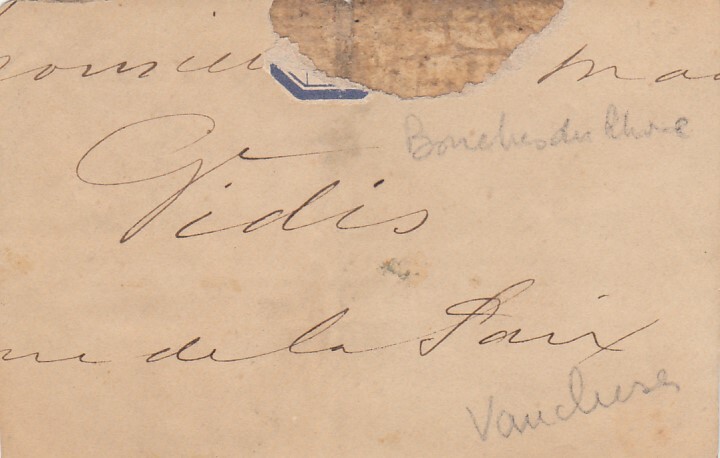 onsieu Ma
Bouches du Rhone
Vidis
ue de la Paix
Vaucluse